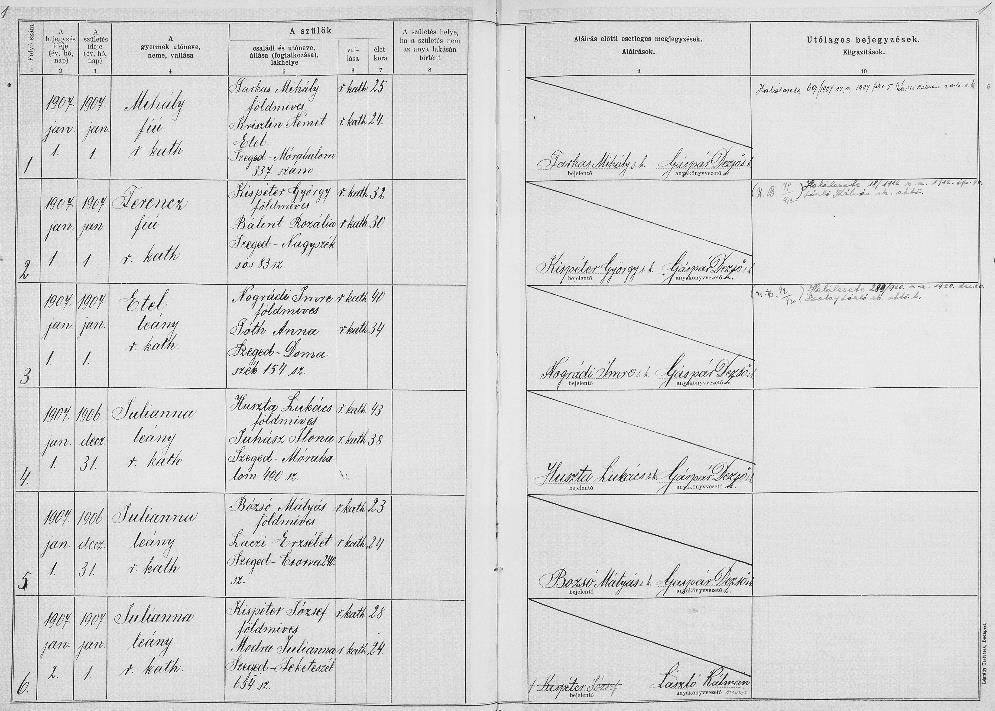 1
1
Folyó szám
A bejegyzés ideje (év, hó, nap)
A születés ideje (év, hó, nap)
A gyermek utóneve, neme, vallása
A szülők
családi és utóneve, állása (foglalkozása), lakhelye
vallása
életkora
A születés helye, ha a születés nem az anya lakásán történt
Aláírás előtti esetleges megjegyzések. Aláírások.
Utólagos bejegyzések. Kiigazítások.
2 3 4 5 6 7 8 9 10
1
1907. jan. 1.
1907 jan. 1
Mihály
fiú
r. kath
Farkas Mihály r kath 25
földmives
Krisztin Német r kath 24
Etel
Szeged-Mórahalom
337 szám
Farkas Mihály s. k. Gáspár Dezső s. k.
bejelentő anyakönyvvezető
2
1907 jan 1
1907 jan 1
Ferencz
fiú
r. kath
Kispéter György r kath 32
földmives
Bálint Rozália r kath 30
Szeged-Nagyszék
sós 83 sz
Kispéter György s. k. Gáspár Dezső s. k.
bejelentő anyakönyvvezető
3
1907. jan 1.
1907. jan. 1.
Etel
leány
r. kath
Nográdi Imre r kath 40
földmives
Tóth Anna r kath 34
Szeged-Doma
szék 154 sz.
Nográdi Imre s. k. Gáspár Dezső s. k.
bejelentő anyakönyvvezető
4
1907. jan. 1.
1906 decz 31.
Julianna
leány
r. kath
Huszta Lukács r kath 43
földmives
Juhász Ilona r kath 38
Szeged-Móraha
lom 490 sz.
Huszta Lukács s. k. Gáspár Dezső s. k.
bejelentő anyakönyvvezető
5
1907. jan 1.
1906 decz. 31.
Julianna
leány
r. kath
Bózsó Mátyás r kath 23
földmives
Laczi Erzsébet r kath 24
Szeged-Csorva
sz.
Bozsó Mátyás s. k. Gáspár Dezső s. k.
bejelentő anyakönyvvezető
6.
1907 jan. 2.
1907 jan. 1
Julianna
leány
r. kath.
Kispéter József r kath 28
földmives
Modra Julianna r kath 24
Szeged-Feketeszél
134 sz.
Kispéter József László Kálmán
bejelentő anyakönyvvezető